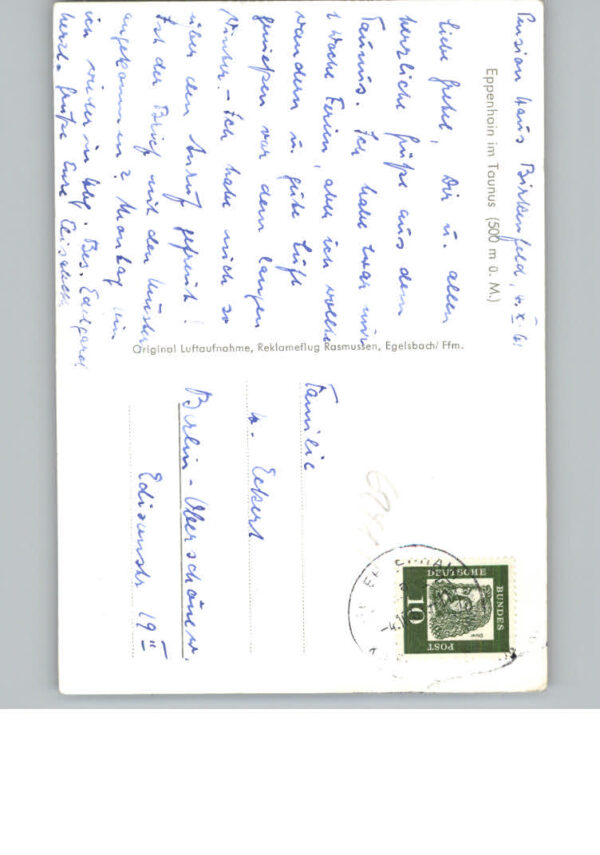 Pension Haus Birkenfeld, 4. X. 61
Eppenhain im Taunus (500 m ü. M.)
Liebe Gretel, Dir u. allen
herzliche Grüße aus dem
Taunus. Ich habe zwar nur
1 Woche Ferien, aber ich wollte
wandern u. gute Luft
genießen vor dem langen
Winter. – Ich habe mich so
über den Anruf gefreut!
Ist der Brief mit den Mustern
angekommen? Montag bin
ich wieder in Hbg. Bes. Edelgard
herzl. Grüße Eure
Original Luftaufnahme, Reklameflug Rasmussen, Egelsbach/Ffm.
Familie
H. Eckert
Berlin-Oberschönew.
Edisonstr. 19 II
DEUTSCHE
BUNDES
POST
10
Dürer